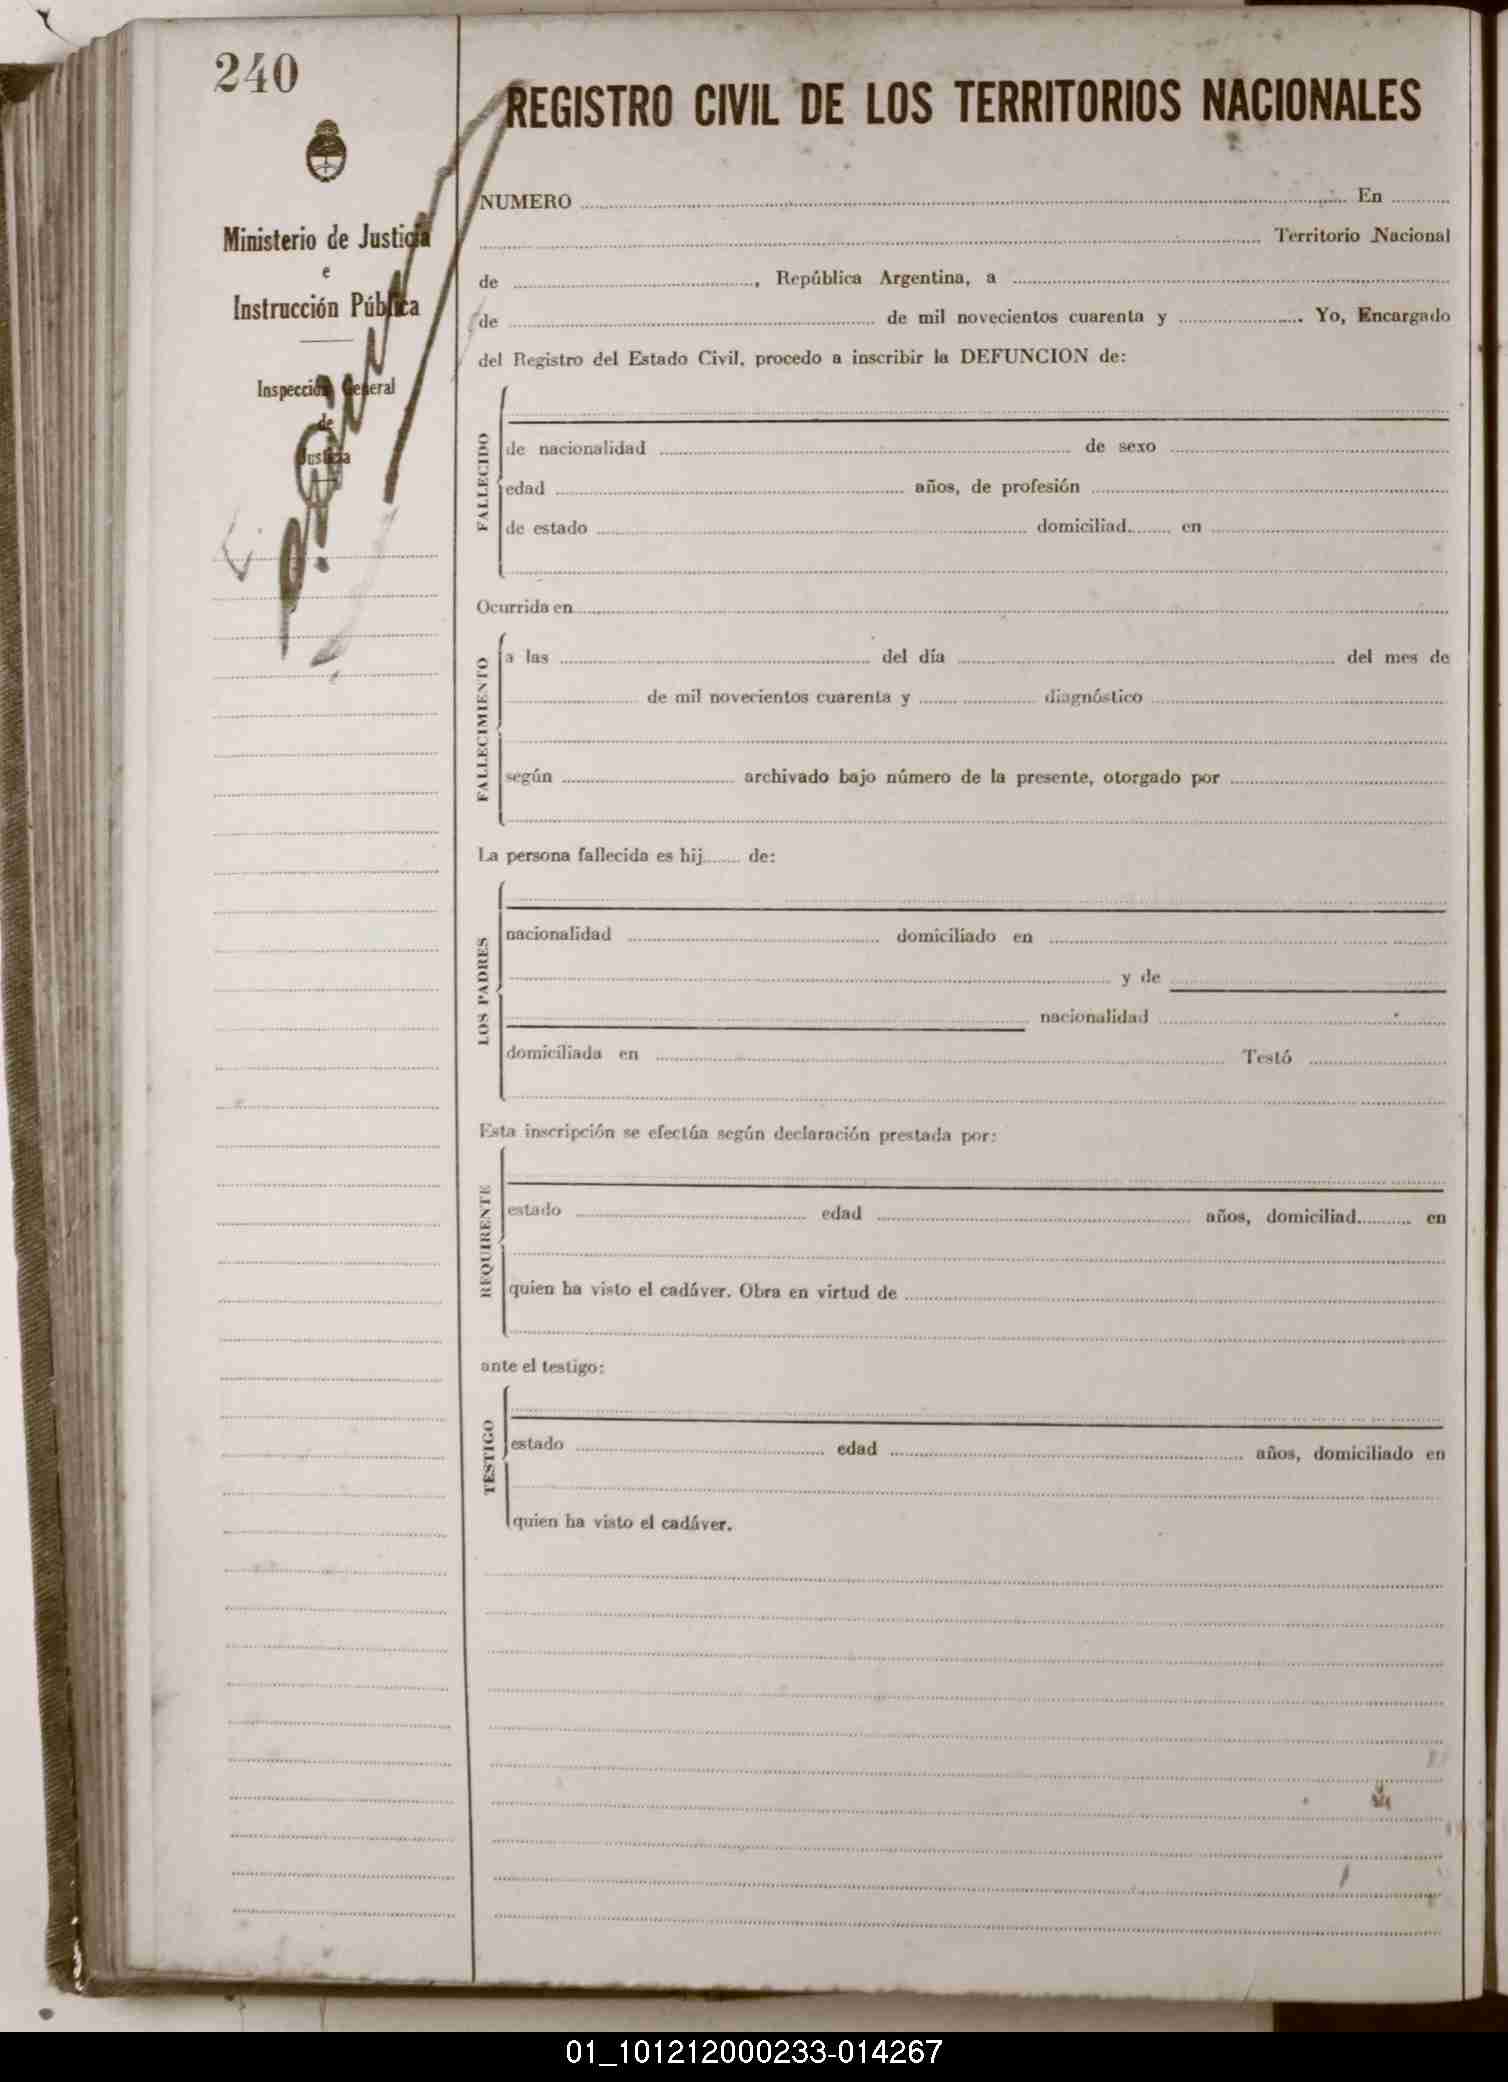 240
REGISTRO CIVIL DE LOS TERRITORIOS NACIONALES
Ministerio de Justicia
e
Instrucción Pública
Inspección General
de
Justicia
NUMERO En
Territorio Nacional
de , República Argentina, a
de de mil novecientos cuarenta y . Yo, Encargado
del Registro del Estado Civil, procedo a inscribir la DEFUNCION de:
FALLECIDO
de nacionalidad de sexo
edad años, de profesión
de estado domiciliad en
Ocurrida en
FALLECIMIENTO
a las del día del mes de
de mil novecientos cuarenta y diagnóstico
según archivado bajo número de la presente, otorgado por
La persona fallecida es hij de:
LOS PADRES
nacionalidad domiciliado en
y de
nacionalidad
domiciliada en Testó
Esta inscripción se efectúa según declaración prestada por:
REQUIRENTE
estado edad años, domiciliad en
quien ha visto el cadáver. Obra en virtud de
ante el testigo:
TESTIGO
estado edad años, domiciliado en
quien ha visto el cadáver.
01_101212000233-014267